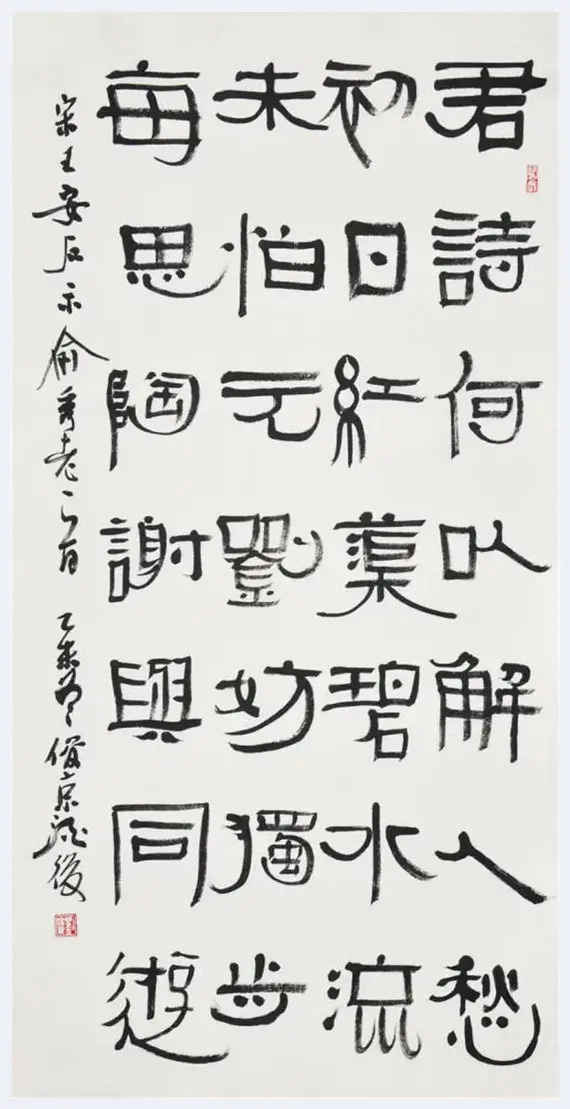 君詩何以解人愁
初日紅蕖碧水流
未怕元劉妨獨步
每思陶謝與同遊
宋王安石示俞秀老 乙未 俊京